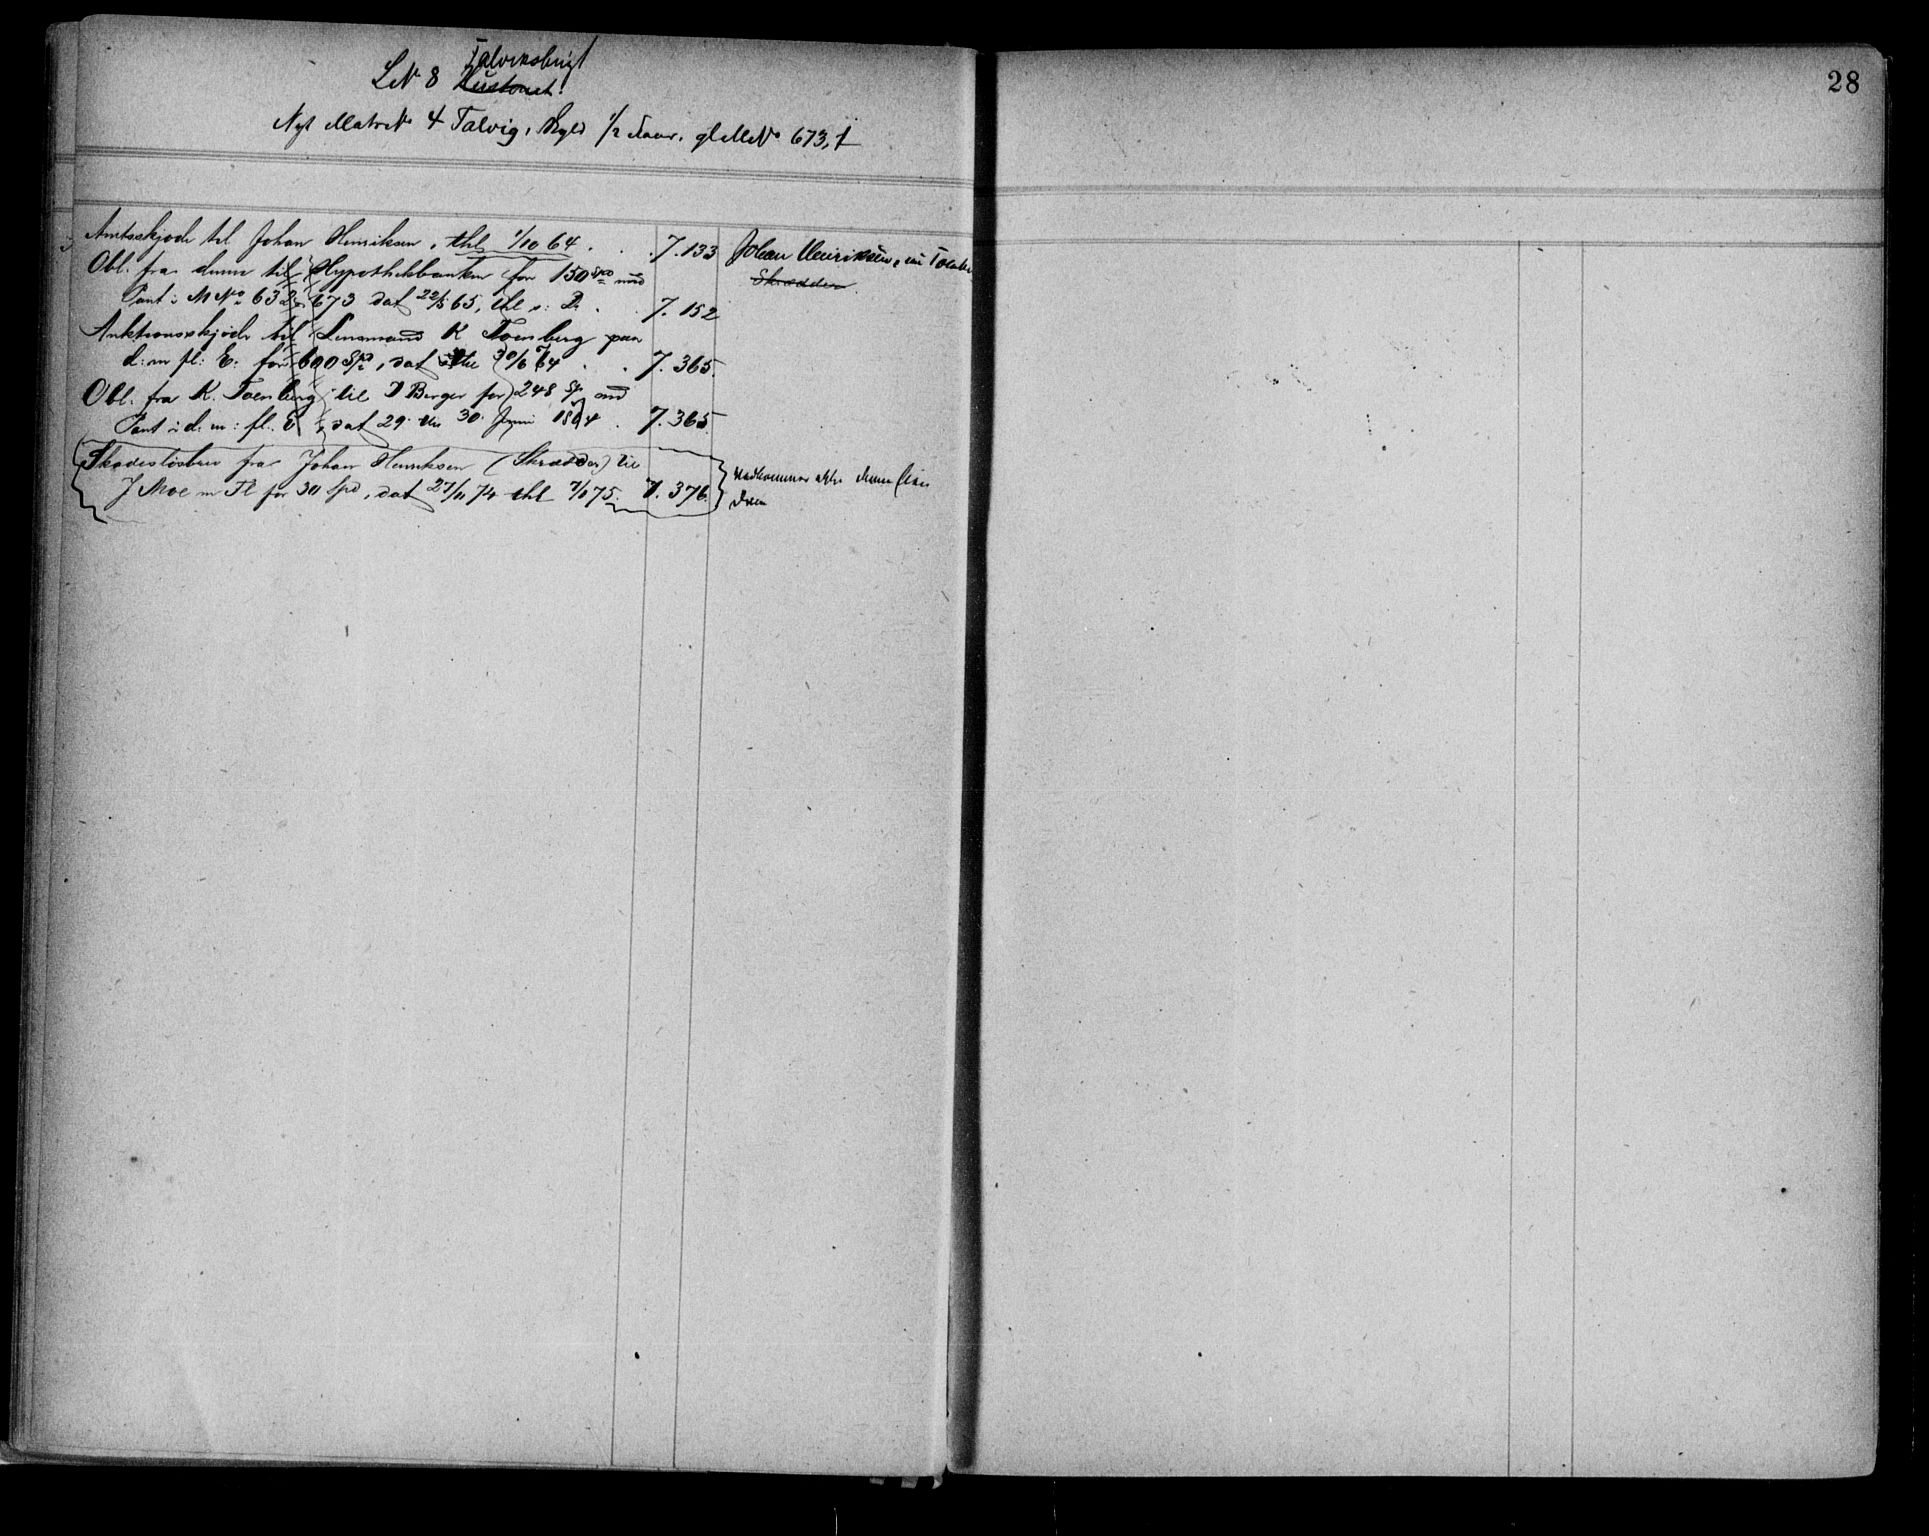 28
Talviksbugt
LN 8
Nyt MatrNo 4 Talvig, Skyld 1/2 daar. gl MNo 673,1
Amtsskjøde til Johan Henriksen, thl 1/10 64. . . 7.133 Johan Henriksen,
Skrædder
Obl. fra denne til Hypothekbanken for 150 Spd mod
Pant i MNo 632, 673 dat 22/5 65, thl s: D. . . 7.152
Auktionsskjøde til Lensmand K Toenberg paa
d: m fl: E. for 600 Spd, dat thl 30/6 64 . . 7.365.
Obl. fra K. Toenberg til D Berger for 248 Sp mod
Pant i d: m: fl: E, dat 29. thl 30. Juni 1864 . 7.365.
Skadesløsbrev fra Johan Henriksen (Skrædder) til
J Moe m Fl for 30 Spd, dat 27/11 74 thl 7/1 75. 7.376. Vedkommer ikke denne